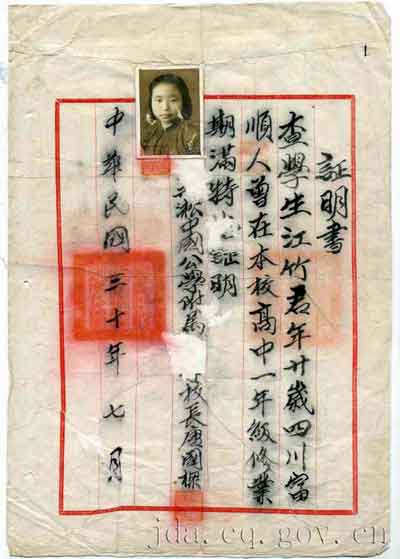 1
証明書
查學生江竹君年廿歲四川富
順人曾在本校高中一年級修業
期滿特此証明
淞中國公學附屬校長唐國
中華民國三十年七月
jda.cq.gov.cn